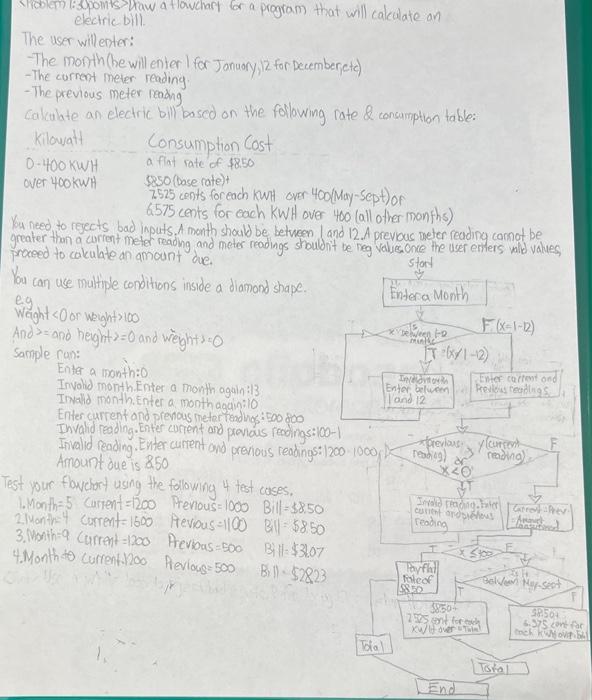 <Problem 1: 30points> Draw a flowchart for a program that will calculate an
electric bill.
The user will enter:
-The month (he will enter 1 for January, 12 for December, etc)
-The current meter reading.
-The previous meter reading
Calculate an electric bill based on the following rate & consumption table:
Kilowatt Consumption Cost
0-400 KWH a flat rate of $8.50
over 400 KWH $8.50 (base rate)+
7.525 cents for each KWH over 400 (May-Sept) or
6.575 cents for each KWH over 400 (all other months)
You need to rejects bad inputs. A month should be between 1 and 12. A previous meter reading cannot be
greater than a current meter reading and meter readings shouldn't be neg values. Once the user enters valid values,
proceed to calculate an amount due.
You can use multiple conditions inside a diamond shape.
e.g
Weight <0 or weight>100
And >= and height >=0 and weight >=0
Sample run:
Enter a month: 0
Invalid month. Enter a month again: 13
Invalid month. Enter a month again: 10
Enter current and previous meter readings: 500 800
Invalid reading. Enter current and previous readings: 100 -1
Invalid reading. Enter current and previous readings: 1200 1000
Amount due is 8.50
Test your flowchart using the following 4 test cases.
1. Month=5 Current=1200 Previous=1000 Bill=$8.50
2. Month=4 Current=1500 Previous=1100 Bill=$8.50
3. Month=9 Current=1200 Previous=500 Bill=$31.07
4. Month=10 Current=1200 Previous=500 Bill=$28.23
Start
Enter a Month
Is
x between 1-12
months
F (x=1-12)
T (x≠1-12)
Invalid month
Enter between
1 and 12
Enter current and
Previous readings
x(previous
reading) > y(current
reading)
or
x<0
F
T
Invalid reading. Enter
current and previous
reading
Current - Prev
= Amount
T x≤400 F
Pay flat
rate of
$8.50
Is it
between May-sept
T
F
$8.50+
7.525 cent for each
KWH over = Total
$8.50+
6.575 cent for
each KWH over
Total
Total
End